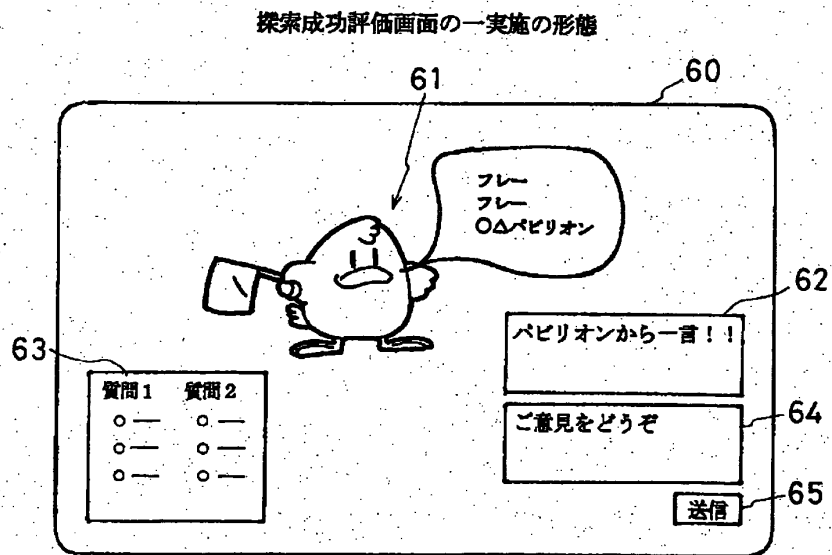 探索成功評価画面の一実施の形態
60
61
フレー
フレー
○△パビリオン
62
パビリオンから一言!!
63
質問1 質問2
ご意見をどうぞ
64
送信
65